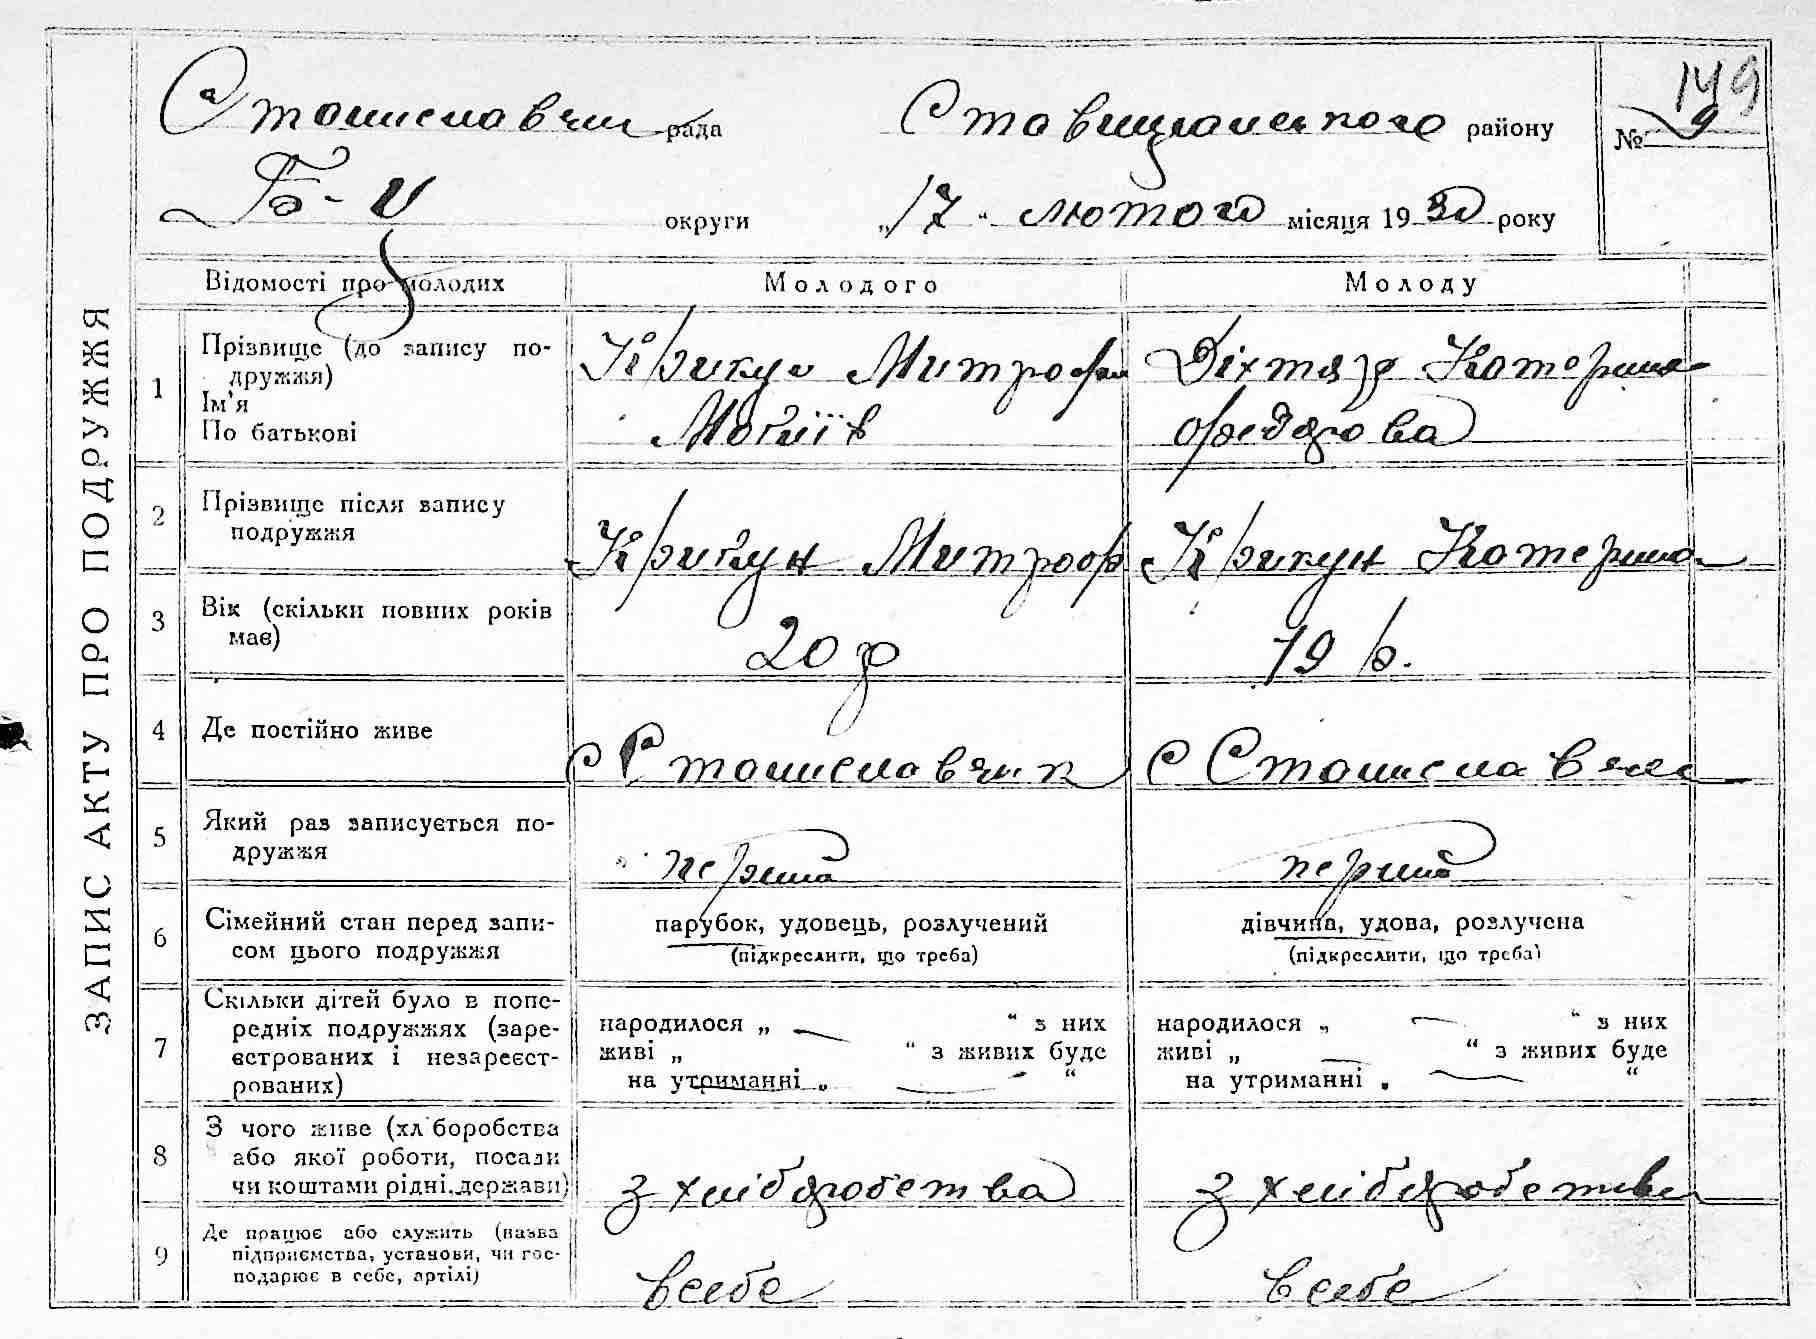 149
Станиславчик рада Ставищанського району № 9
Б-Ц округи „17“ лютого місяця 1930 року
ЗАПИС АКТУ ПРО ПОДРУЖЖЯ
Відомості про молодих Молодого Молоду
1 Прізвище (до запису по-
дружжя)
Ім'я
По батькові
Крикун Митрофан
Мобиїв
Діхтяр Катерина
Федорова
2 Прізвище після запису
подружжя
Крикун Митроф Крикун Катерина
3 Вік (скільки повних років
має)
20 р 19 р.
4 Де постійно живе с Станиславчик с Станиславчик
5 Який раз записується по-
дружжя
перший перший
6 Сімейний стан перед запи-
сом цього подружжя
парубок, удовець, розлучений
(підкреслити, що треба)
дівчина, удова, розлучена
(підкреслити, що треба)
7 Скільки дітей було в попе-
редніх подружжях (заре-
єстрованих і незареєст-
рованих)
народилося „ — “ з них
живі „ “ з живих буде
на утриманні „ — “
народилося „ — “ з них
живі „ — “ з живих буде
на утриманні „ — “
8 З чого живе (хліборобства
або якої роботи, посади
чи коштами рідні, держави)
з хліборобства з хліборобства
9 Де працює або служить (назва
підприємства, установи, чи гос-
подарює в себе, артілі)
в себе в себе